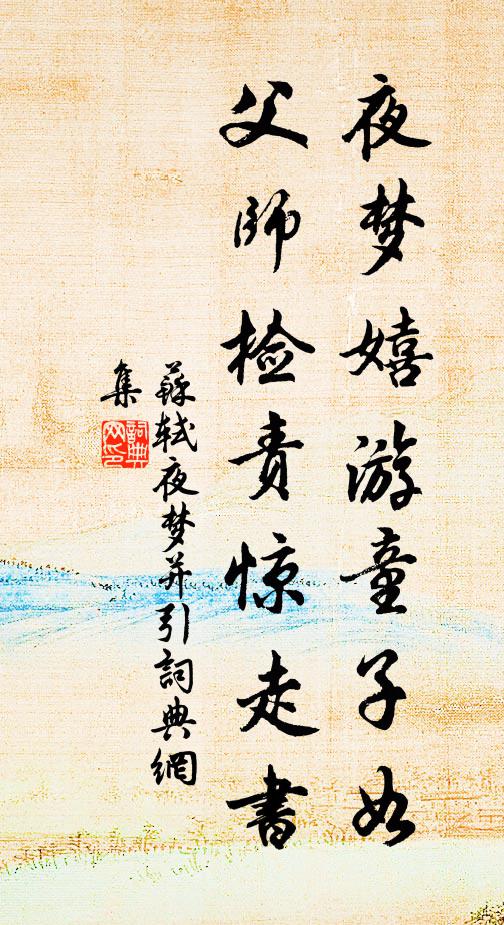 夜梦嬉游童子如
父师检责惊走書
蘇轼夜梦并引詞典網
集
詞典网印